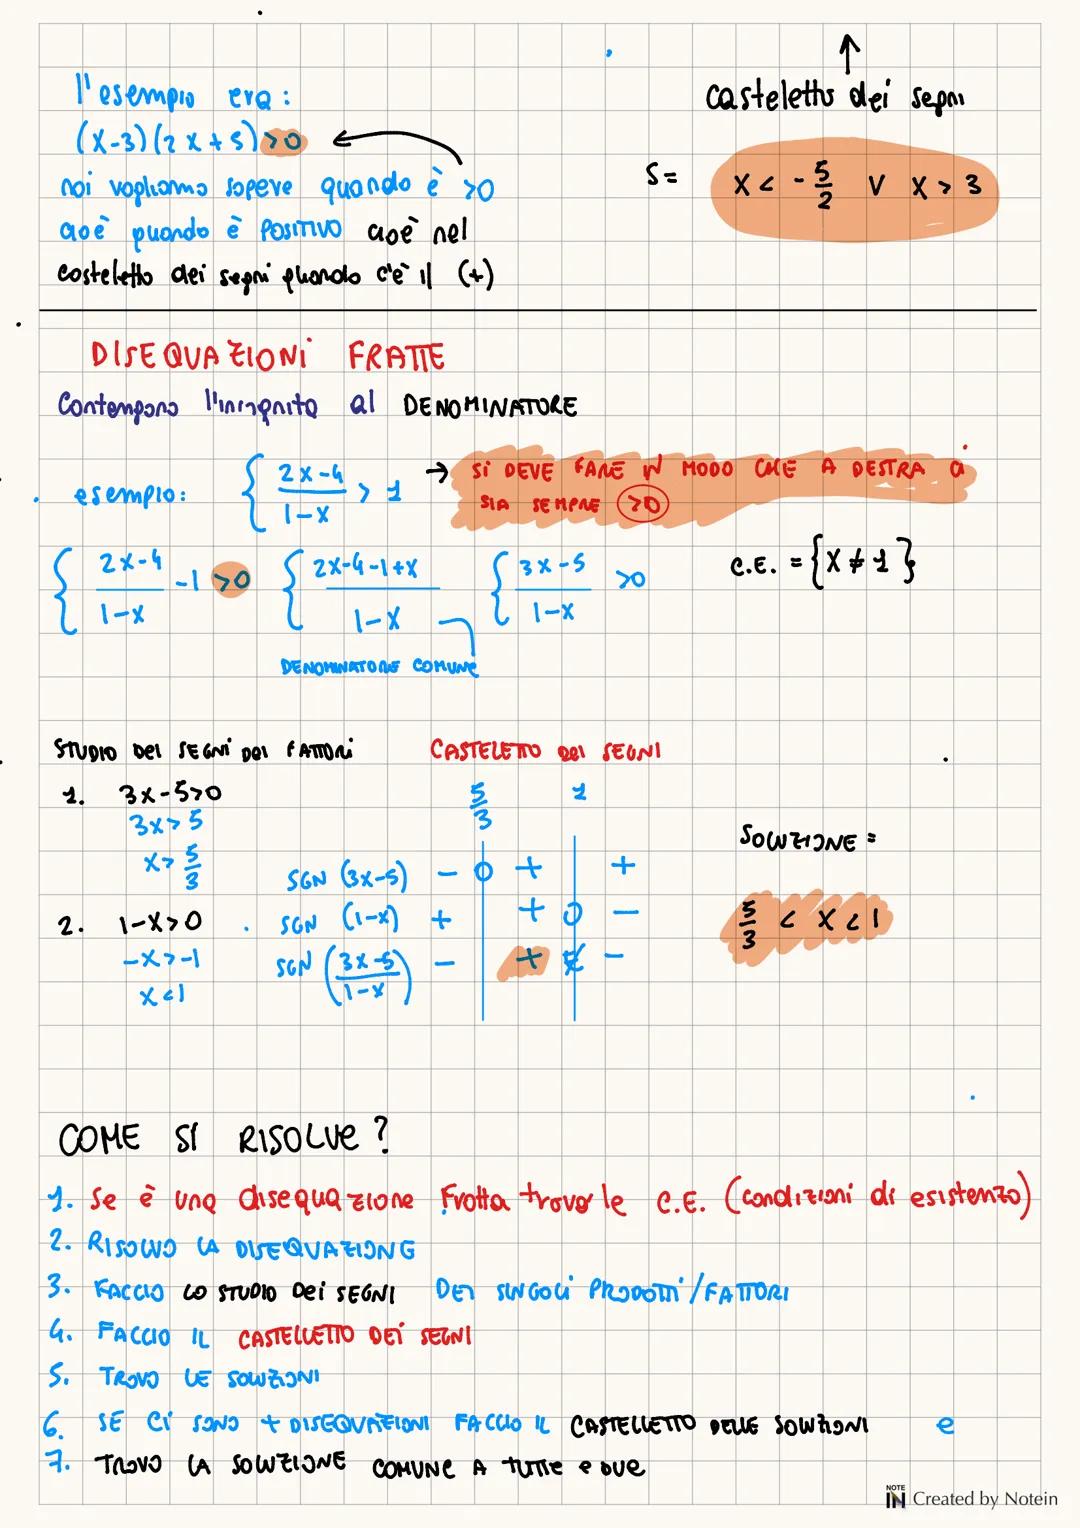 l'esempio era:
(x-3)(2x+5)>0
noi vogliamo sapere quando è >0
cioè quando è POSITIVO cioè nel
casteletto dei segni quando c'è il (+)
↑
casteletto dei segni
S= x < -5/2 V x > 3
DISEQUAZIONI FRATTE
Contengono l'incognita al DENOMINATORE
esempio: { 2x-4/1-x > 1 → SI DEVE FARE IN MODO CHE A DESTRA CI
SIA SEMPRE >0
{ 2x-4/1-x -1 >0 { 2x-4-1+x/1-x { 3x-5/1-x >0 C.E. = {x ≠ 1}
DENOMINATORE COMUNE
STUDIO DEI SEGNI DEI FATTORI CASTELETTO DEI SEGNI
1. 3x-5>0
3x>5
x> 5/3
2. 1-x>0
-x>-1
x<1
5/3 1
SGN (3x-5) - 0 + +
SGN (1-x) + + 0 -
SGN (3x-5/1-x) - + ∄ -
SOLUZIONE =
5/3 < x < 1
COME SI RISOLVE?
1. Se è una disequazione fratta trovo le C.E. (condizioni di esistenza)
2. RISOLVO LA DISEQUAZIONE
3. FACCIO LO STUDIO DEI SEGNI DEI SINGOLI PRODOTTI/FATTORI
4. FACCIO IL CASTELLETTO DEI SEGNI
5. TROVO LE SOLUZIONI
6. SE CI SONO + DISEQUAZIONI FACCIO IL CASTELLETTO DELLE SOLUZIONI e
7. TROVO LA SOLUZIONE COMUNE A TUTTE e DUE
NOTE
IN Created by Notein